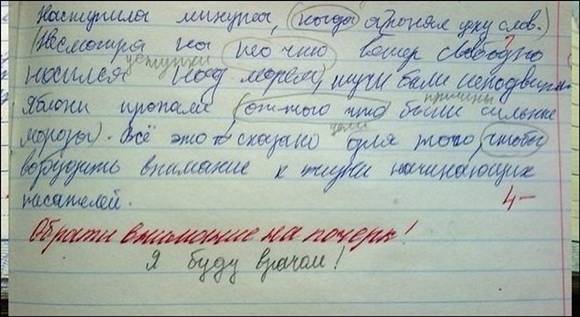 Наступила минута, (когда я понял цену слов.)
(Несмотря на то что ветер свободно
уступки
носился над морем), тучи были неподвижн
причины
Яблони пропали (оттого что были сильные
цели
морозы). Всё это сказано для того чтобы
возбудить внимание к жизни начинающих
писателей. 4-
Обрати внимание на почерк!
Я буду врачом!